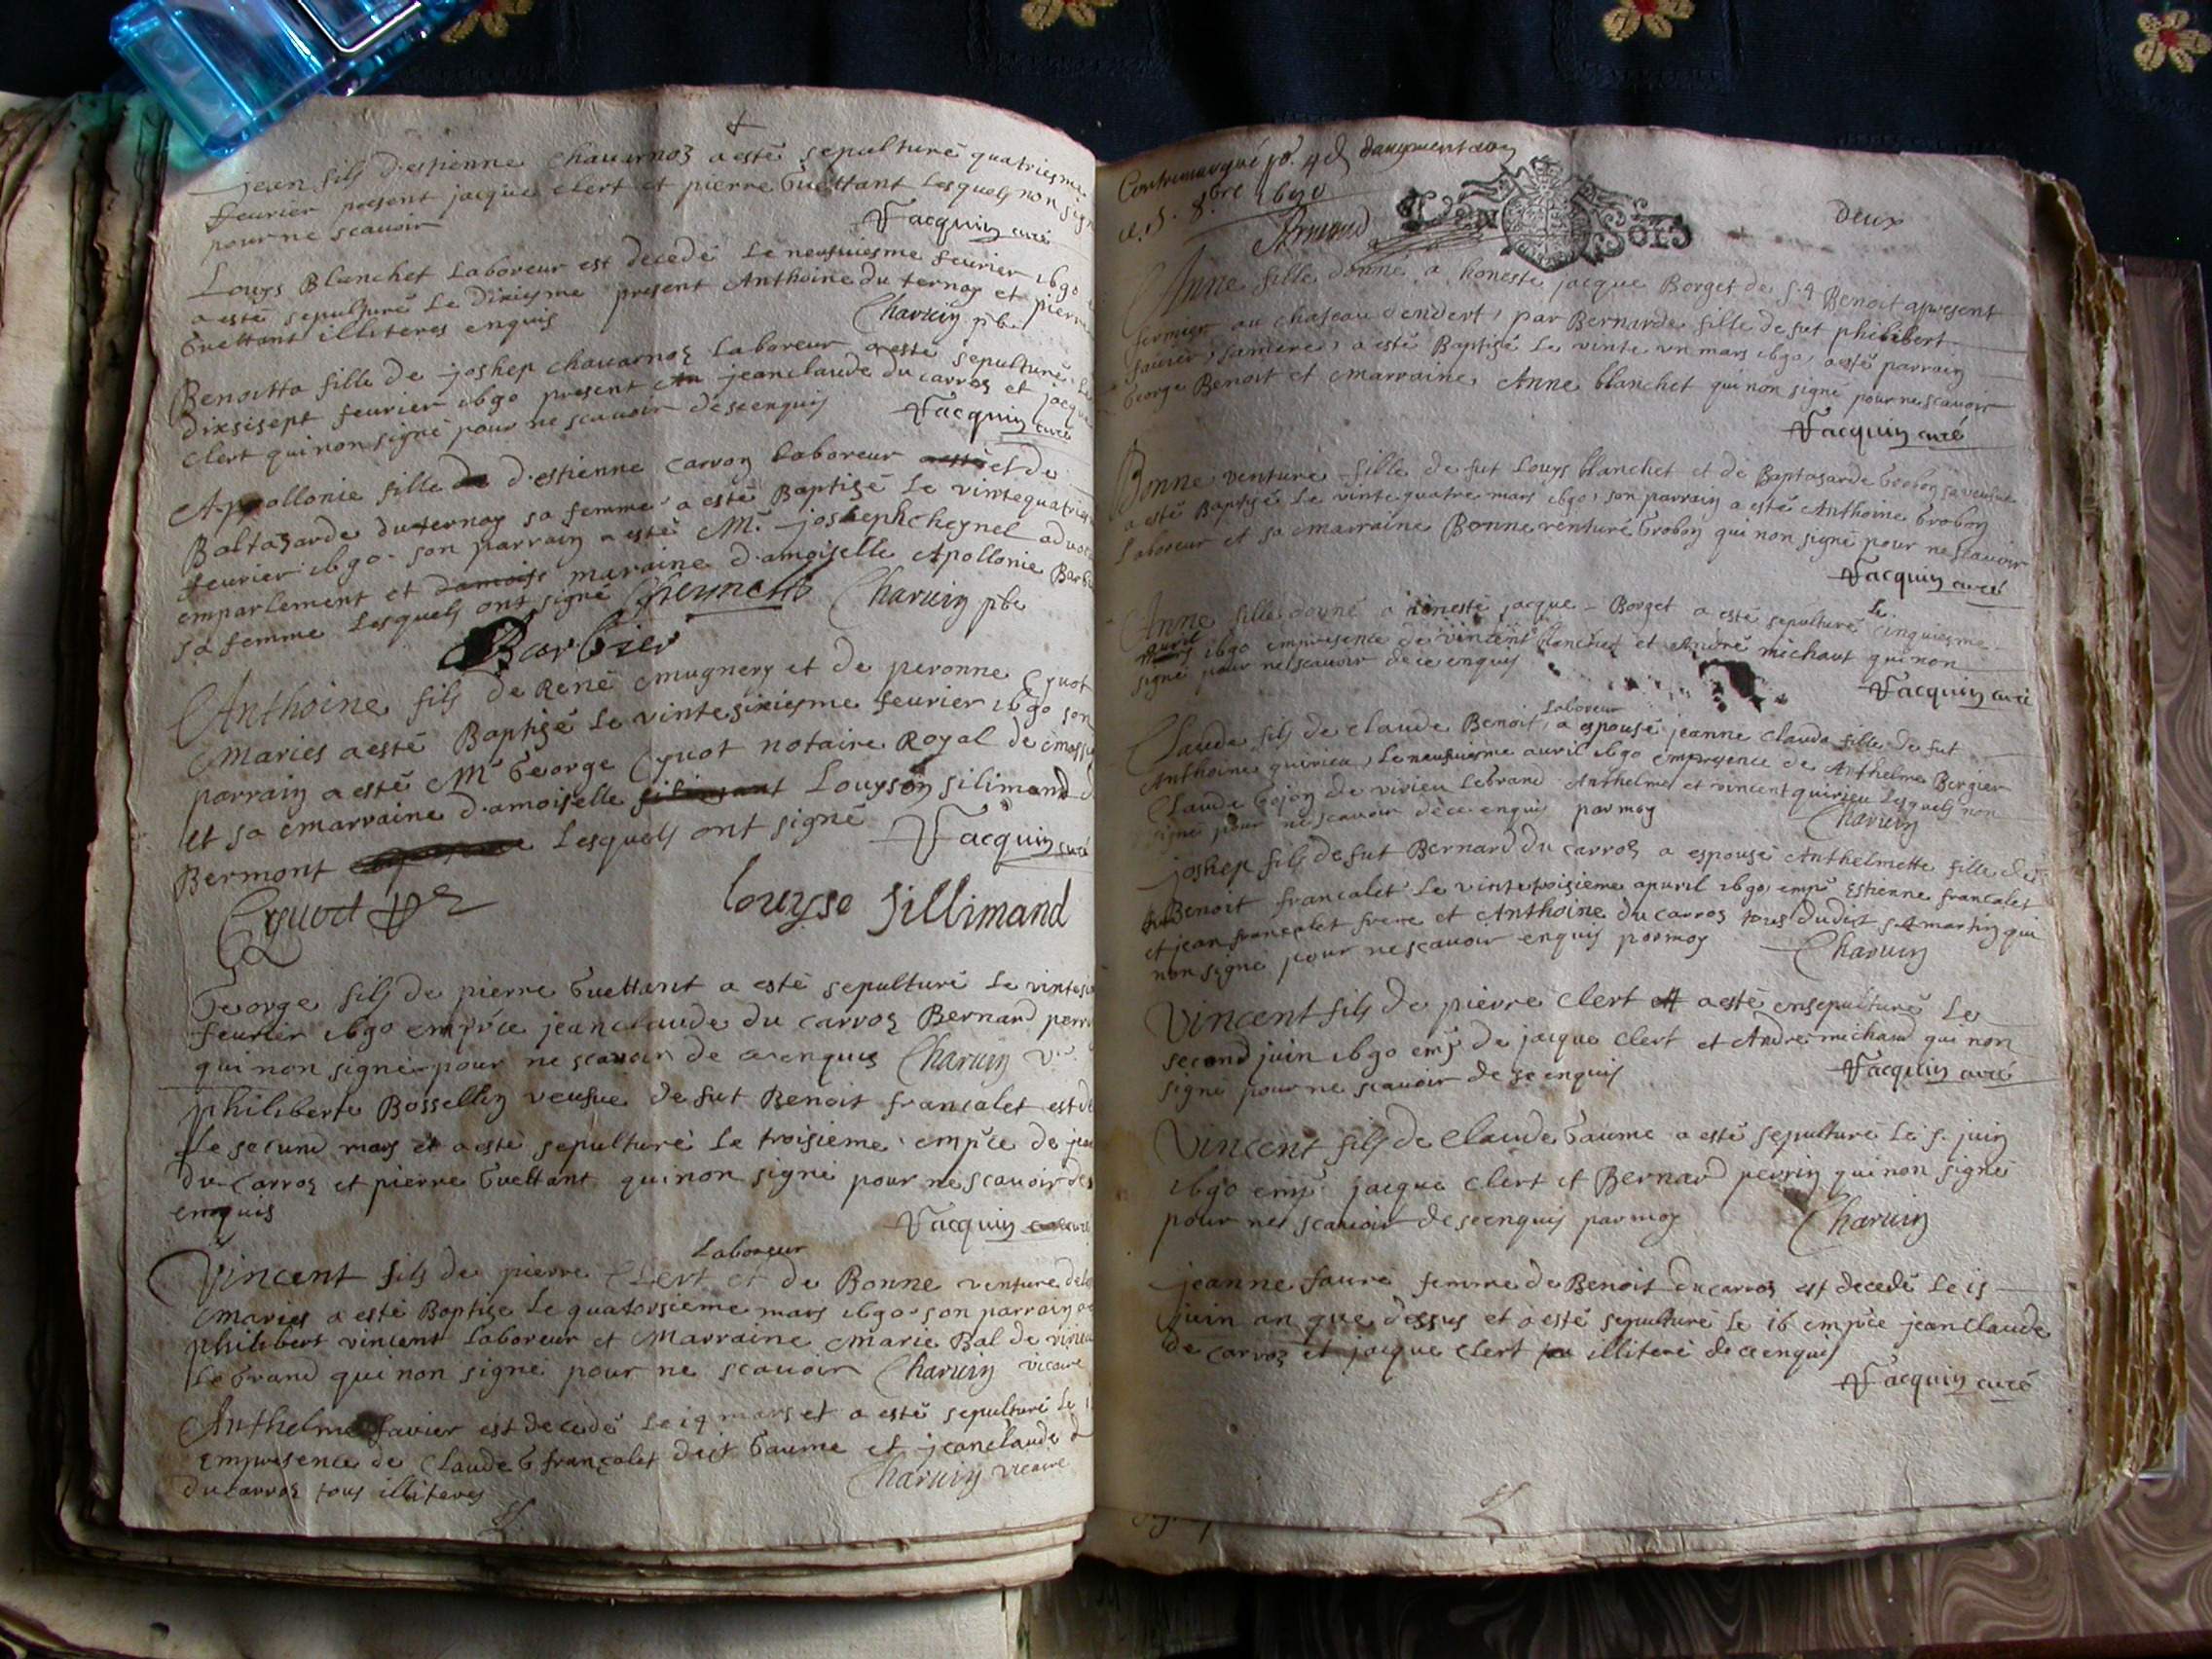 jean fils d'estienne chauarnoz a esté sepulturé quatriesme
feurier present jacque clert et pierre Guettant lesquels non sign
pour ne scauoir
Jacquin curé
Louys Blanchet Laboreur est decedé le neufuiesme feurier 1690
a esté sepulturé Le dixiesme present Anthoine du ternay et pierre
Guettant illiteres enquis
Charuin pbre
Benoitte fille de joshep chauarnoz Laboreur a esté sepulturé Le
dixsisept feurier 1690 present jeanclaude du carroz et jacque
clert qui non signé pour ne scauoir de ce enquis
Jacquin curé
Appollonie fille d'estienne carron laboreur et de
Baltazarde du ternay sa femme a esté Baptizé Le vintequatries
feurier 1690 son parrain a esté Mr josheph cheynel aduoc
emparlement et maraine d'amoiselle Apollonie Barbi
sa femme Lesquels ont signé
Charuin pbr
Barbier
Anthoine fils de René mugnery et de peronne Cyuot
Maries a esté Baptizé Le vintesixiesme feurier 1690 son
parrain a esté Mr George Cyuot notaire Royal de
et sa marraine d'amoiselle Louyson silimand d
Bermont Lesquels ont signé
Jacquin curé
Cyuot
louyse sillimand
George fils de pierre Guettant a esté sepulturé Le vintesi
feurier 1690 emp'ce jeanclaude du carroz Bernard perri
qui non signé pour ne scauoir de ce enquis Charuin v
philiberte Bossellin veufue de fut Benoit francalet est de
Le second mars et a esté sepulturé Le troisieme emp'ce de jean
du carroz et pierre Guettant qui non signé pour ne scauoir de
enquis
Jacquin curé
Laboreur
Vincent fils de pierre Clert et de Bonne venture
Maries a esté Baptize Le quatorsieme mars 1690 son parrain
philibert vincent Laboreur et Marraine Marie Bal de virieu
Le Grand qui non signé pour ne scauoir Charuin vicaire
Anthelme fauier est decedé Le 14 mars et a esté sepulturé Le
empresence de Claude francalet dit Gaume et jeanclaude
du carroz tous illiteres
Charuin vicaire
Contremarqué d'augmentaon
ce 5. 8bre 1690
Armand
deux sols
deux
Anne fille donné a honeste jacque Borget de st Benoit apresent
fermier au chasteau dendert, par Bernarde fille de fut philibert
fauier, samere, a esté Baptizé Le vinte vn mars 1690, a esté parrain
George Benoit et marraine Anne blanchet qui non signé pour ne scauoir
Jacquin curé
Bonne venture fille de fut Louys blanchet et de Baptasarde Grobon sa veufue
a esté Baptizé Le vintequatre mars 1690, son parrain a esté Anthoine Grobon
Laboreur et sa marraine Bonne venture Grobon qui non signé pour ne scauoir
Jacquin curé
Anne fille donné a honeste jacque Borget a esté sepulturé Le cinquiesme
1690 empresence de vincent blanchet et André michaut qui non
signé pour ne scauoir de ce enquis
Jacquin curé
Laboreur
Claude fils de claude Benoit a espousé jeanne claude fille de fut
Anthoine quirieu, Le neufuiesme auril 1690 empresence de Anthelme Bergier
Claude Gojon de virieu Legrand Anthelme et vincent quirieu Lesquels non
signé pour ne scauoir de ce enquis par moy
Charuin
joshep fils de fut Bernard du carroz a espousé Anthelmette fille de
Benoit francalet Le vintetroisieme apuril 1690 emp' Estienne francalet
et jean francalet frere et Anthoine du carroz tous dudit st martin qui
non signé pour ne scauoir enquis par moy
Charuin
Vincent fils de pierre clert a esté ensepulturé Le
second juin 1690 emp de jacque clert et André michaud qui non
signé pour ne scauoir de ce enquis
Jacquin curé
Vincent fils de Claude Gaume a esté sepulturé Le 5. juin
1690 emp jacque clert et Bernard perrin qui non signé
pour ne scauoir de ce enquis par moy
Charuin
jeanne faure femme de Benoit ducarroz est decedé Le 15
juin an que dessus et a esté sepulturé Le 16 emp'ce jeanclaude
de carroz et jacque clert illiteré de ce enquis
Jacquin curé